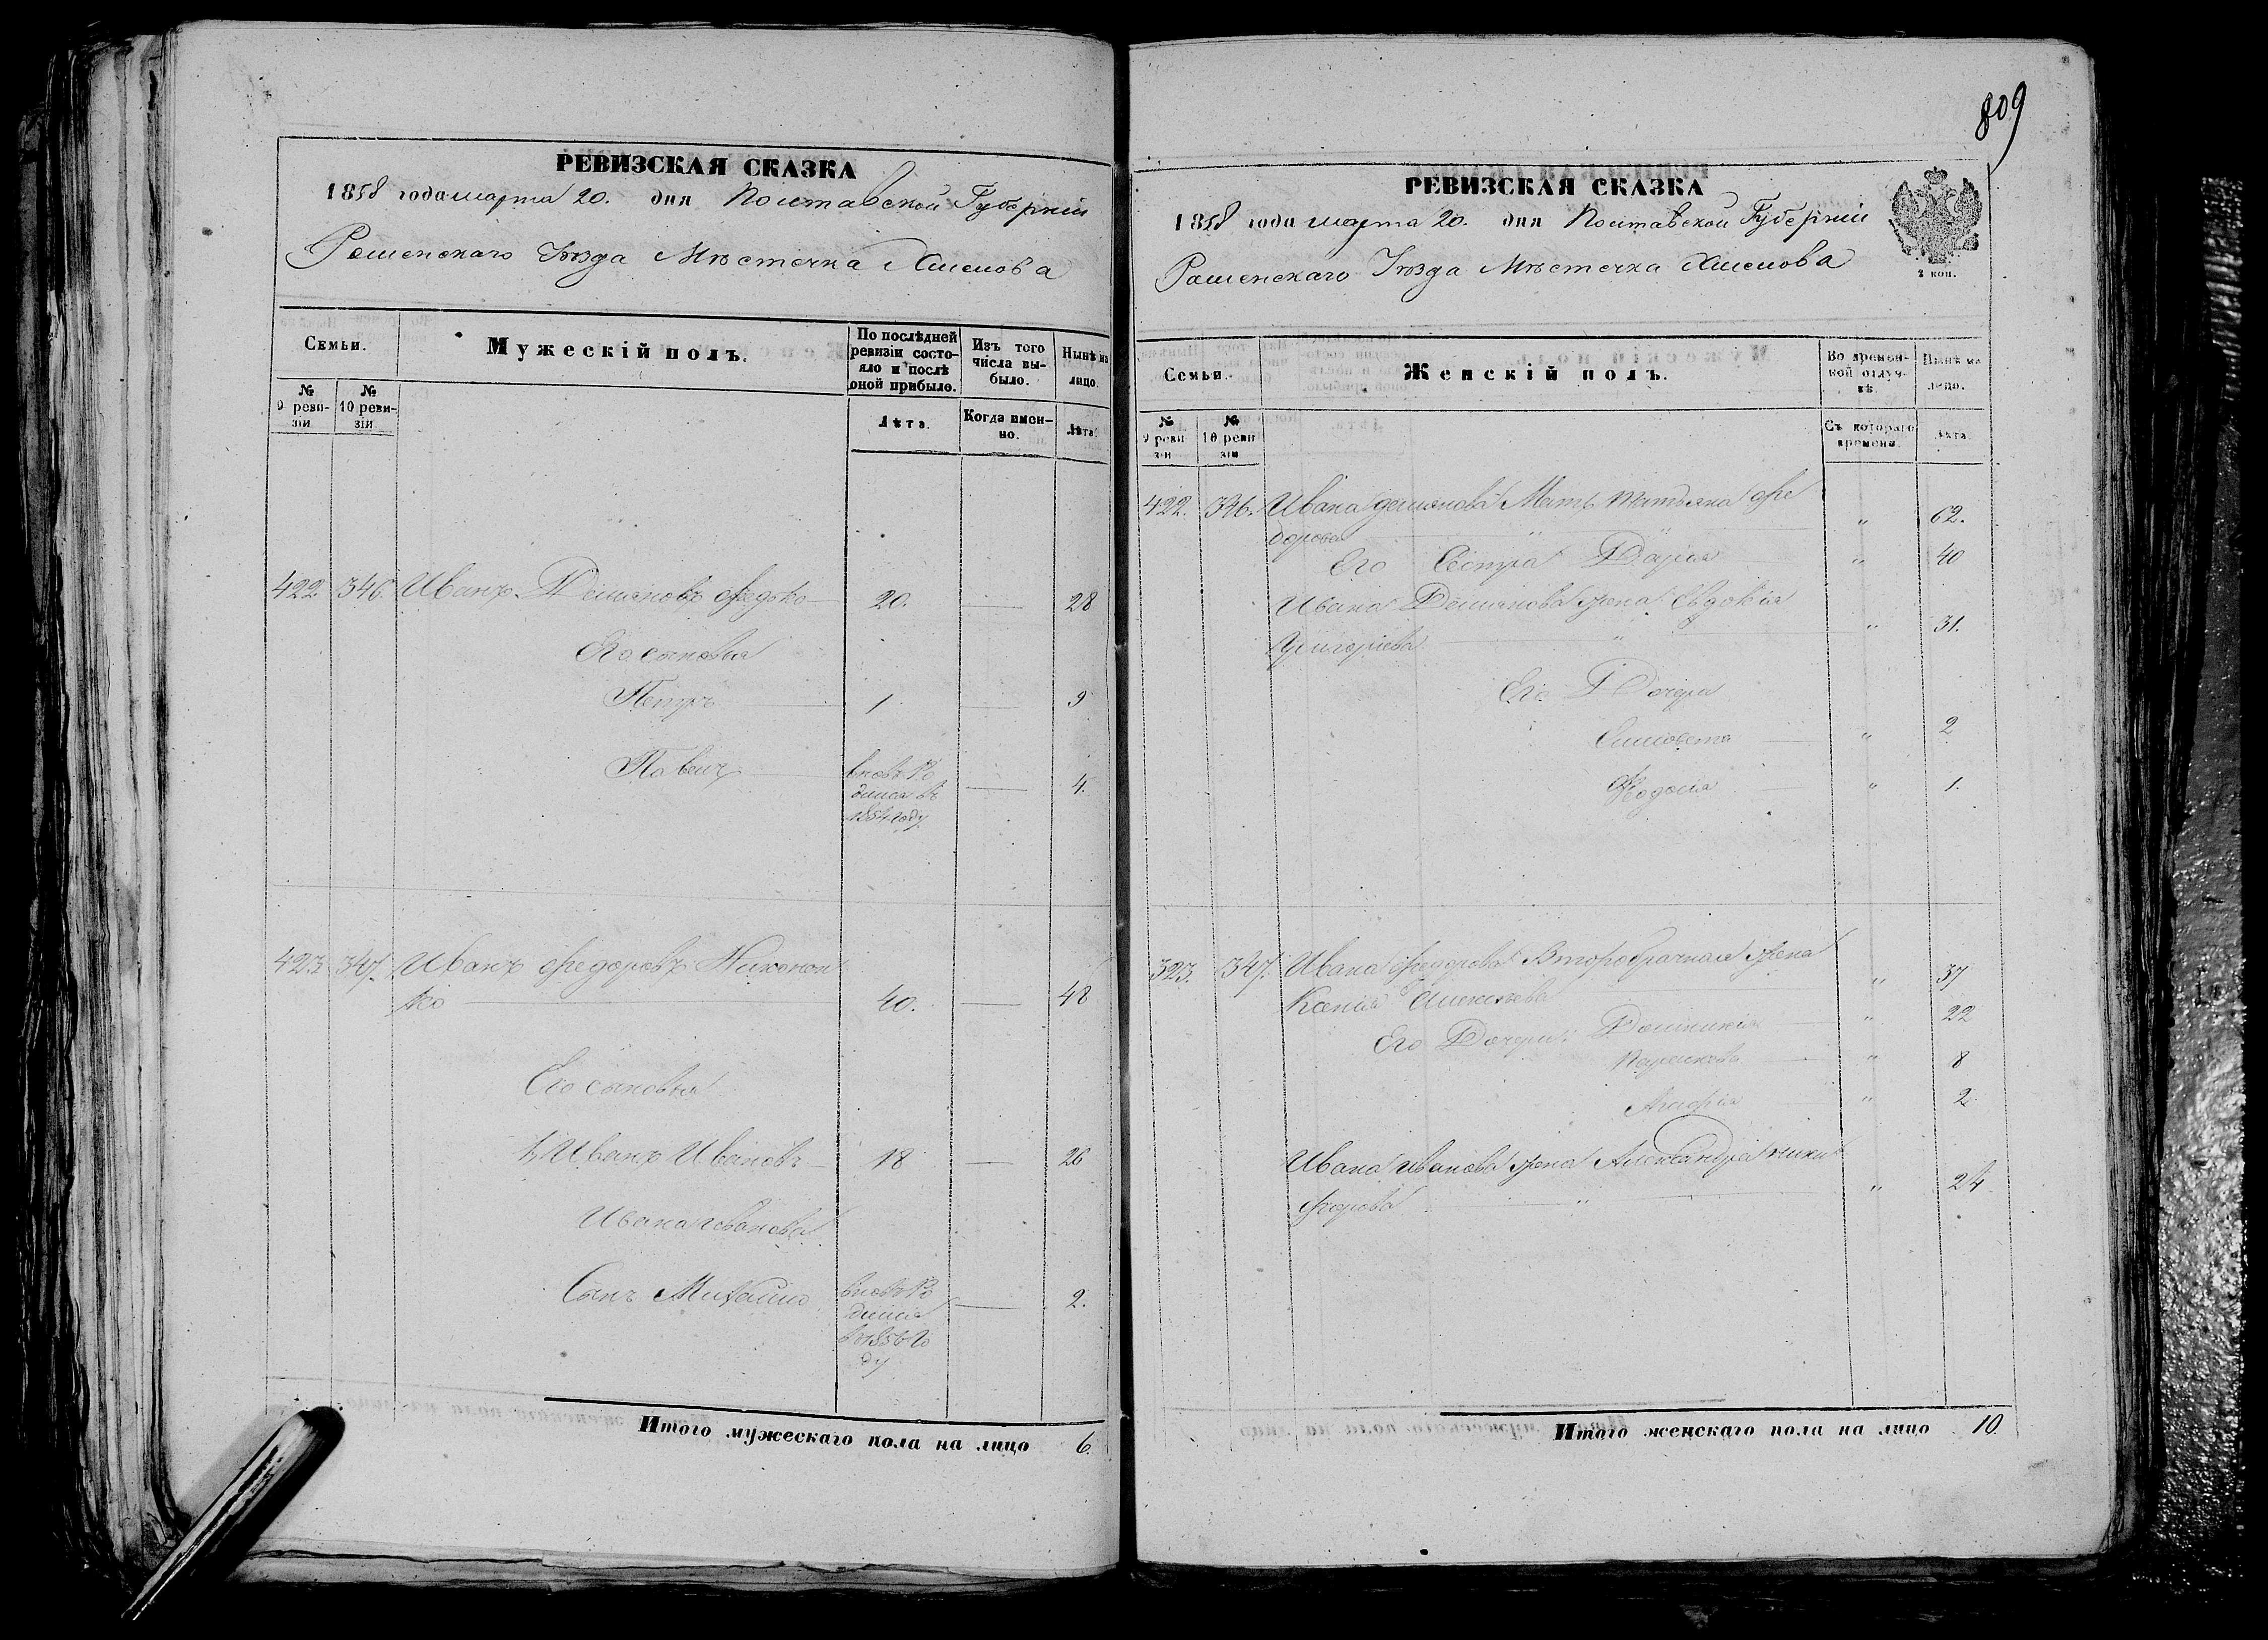 РЕВИЗСКАЯ СКАЗКА
1858 года марта 20. дня Полтавской Губерніи
Роменскаго Уѣзда Мѣстечка Хмелова
Семьи.
Мужескій полъ.
По послѣдней ревизіи состояло и послѣ оной прибыло.
Изъ того числа выбыло.
Нынѣ на лицо.
№ 9 ревизіи
№ 10 ревизіи
Лѣта.
Когда именно.
Лѣта.
422 346 Иванъ Демяновъ Федько 20. — 28
Его сыновья
Петръ 1 — 9
Павелъ вновь Ро — 4.
дился въ
1854 году
423 347. Иванъ Федоровъ Никонен
ко 40. — 48
Его сыновья
1, Иванъ Ивановъ 18 — 26
Ивана Иванова
Сынъ Михайло вновь Ро — 2.
дился
въ 1856 Го
ду
Итого мужескаго пола на лицо 6.
809
РЕВИЗСКАЯ СКАЗКА
1858 года марта 20. дня Полтавской Губерніи
Роменскаго Уѣзда Мѣстечка Хмелова
2 коп.
Семьи.
Женскій полъ.
Во временной отлучкѣ.
Нынѣ на лицо.
№ 9 ревизіи
№ 10 ревизіи
Съ котораго времени.
Лѣта.
422. 346. Ивана Демянова Мать Татьяна Фе
дорова " 62.
Его Сестра Дарія " 40
Ивана Демянова жена Евдокія
Григоріева " 31.
Его Дочери
Елисовета " 2
Феодосія " 1.
323. 347. Ивана Федорова Второбрачная жена
Ксенія Алексѣева " 37
Его Дочери: Домникія " 22
" 8
" 2.
Ивана Иванова жена Александра Ники
форова " 24
Итого женскаго пола на лицо 10.